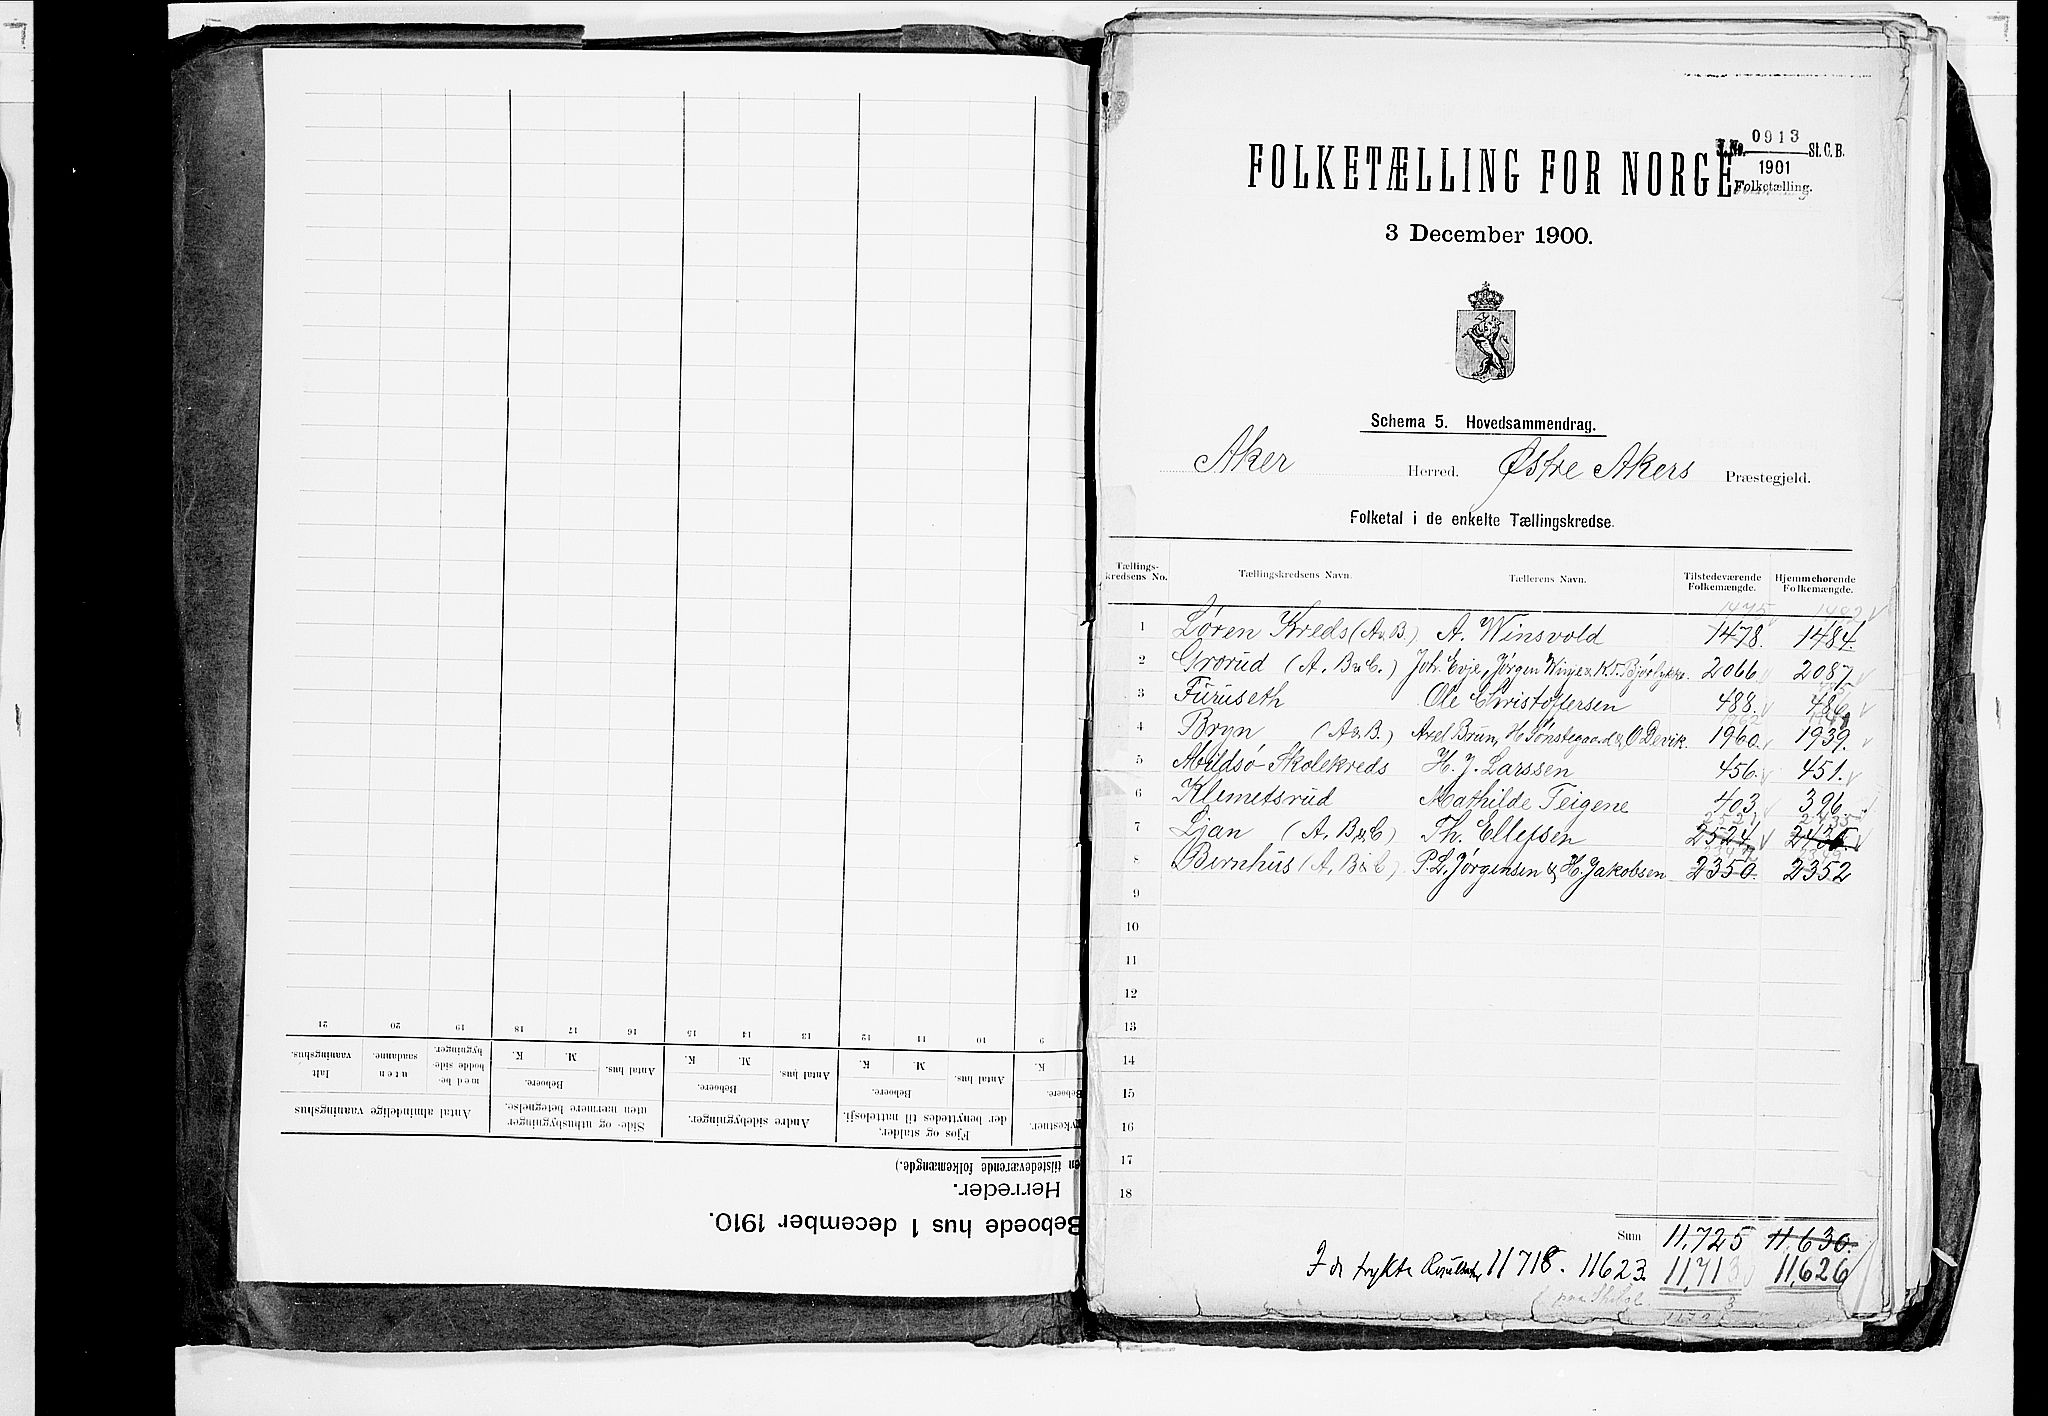 Beboede hus 1 december 1910.
Herreder.
tilstedeværende folkemængde.)
Antal almindelige vaaningshus
Side- og uthusbygninger uten nærmere betegnelse.
Andre sidebygninger.
Fjos og stalder, der benyttedes til nattelosji.
Ialt vaaningshus.
uten saadanne.
med be- bodde side- bygninger.
Beboere.
Antal hus.
Beboere.
Antal hus.
Beboere.
Antal hus.
Beboere.
K. M. K. M. K. M. K.
21 20 19 18 17 16 15 14 13 12 11 10 9
FOLKETÆLLING FOR NORGE
J. No. 0913 St. C. B.
1901
Folketælling.
3 December 1900.
Schema 5. Hovedsammendrag.
Aker Herred. Østre Akers Præstegjeld.
Folketal i de enkelte Tællingskredse.
Tællings-kredsens No. Tællingskredsens Navn. Tællerens Navn. Tilstedeværende Folkemængde. Hjemmehørende Folkemængde.
1475 1482
1 Løren Kreds (A. B.) A. Winsvold 1478. 1484.
2 Grorud (A. B & C.) Joh. Evje, Jørgen Winje & K. T. Bjørlykke. 2066. 2087.
3 Furuseth Ole Christoffersen 488. 486.
1962
4 Bryn (A & B.) Axel Brun, H. Sønstegaard & O Devik. 1960. 1939.
5 Skolekreds H. J. Larssen 456. 451.
6 Klemetsrud Mathilde Teigene 403. 396.
2521 2435
7 Ljan (A, B & C) Th. Ellefsen 2524.
8 (A, B & C) P. L. Jørgensen & H. Jakobsen 2350. 2352
9
10
11
12
13
14
15
16
17
18
Sum 11,725 11,630.
I de trykte 11718. 11623. 11,713 11,626
3